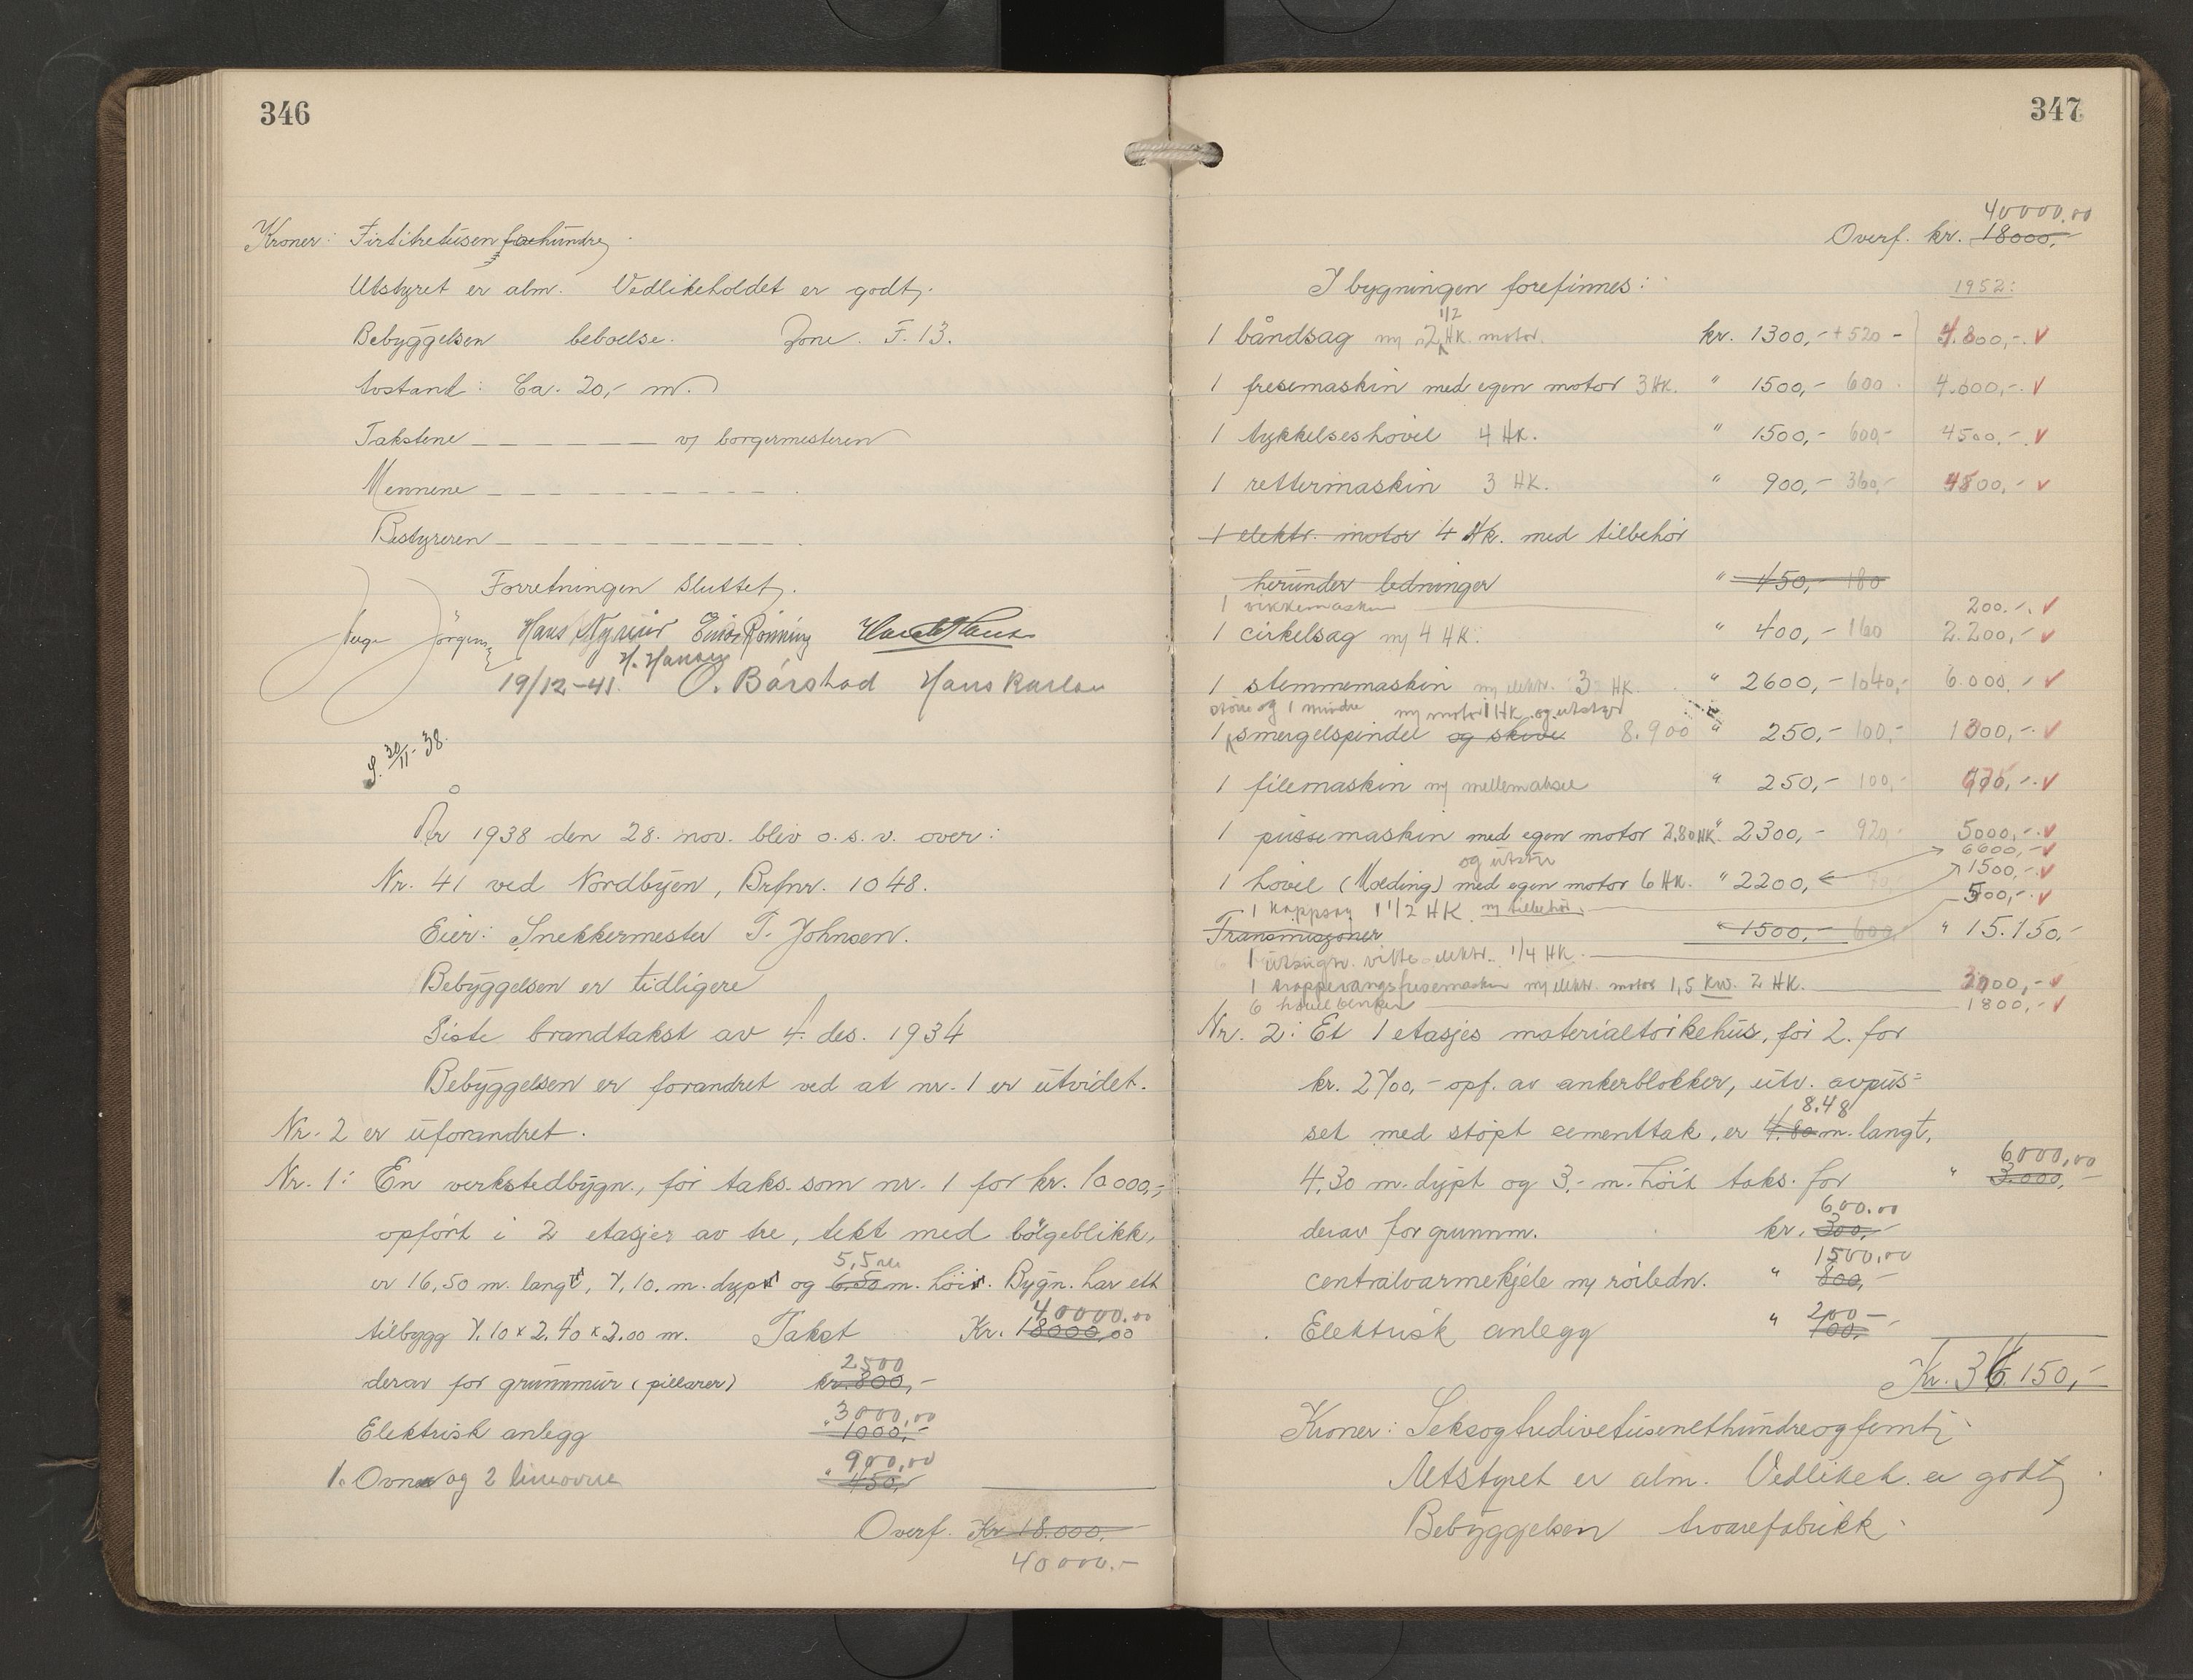 346
Kroner: Firtitretusen
Utstyret er alm. Vedlikeholdet er godt.
Bebyggelsen beboelse. Zone. F. 13.
Avstand: Ca. 20,- m.
Takstene — — — — — — v/ borgermesteren
Mennene — — — — — — — — —
Bestyreren — — — — — — — — —
Forretningen sluttet.
Aage Jörgens Hans Einar Rönning
H. Hansen
19/12-41. O. Bårstad Hans Karlsen
S. 30/11-38.
År 1938 den 28. nov. blev o. s. v. over:
Nr. 41 ved Nordbyen, Brfnr. 1048.
Eier: Snekkermester T. Johnsen.
Bebyggelsen er tidligere
Siste brandtakst av 4. des. 1934
Bebyggelsen er forandret ved at nr. 1 er utvidet.
Nr. 2 er uforandret.
Nr. 1: En verkstedbygn., før taks. som nr. 1 for kr. 10000,-,
opført i 2 etasjer av tre, tekt med bölgeblikk,
5,5
er 16,50 m. langt, 7,10. m. dypt og 6.50 m. høi. Bygn. har ett
40000.00
tilbygg 7.10 x 2.40 x 2.00 m. Takst Kr. 18000,00
2500
derav for grunnmur (pillarer) kr. 800,-
3000,00
Elektrisk anlegg " 1000,-
900,00
1. Ovn og 2 limovne " 450,-
Overf. Kr 18.000.
40000.-
347
40000.00
Overf. kr. 18000,-
I bygningen forefinnes: 1952:
1/2
1 båndsag m/ 2 HK. motor. kr. 1300,- + 520 - 4.800,-. v
1 fresemaskin med egen motor 3 HK. " 1500,- 600. 4.600,-. v
1 tykkelseshøvel 4 HK. " 1500,- 600,- 4500,-. v
1 rettermaskin 3 HK. " 900,- 360,- 4800,- v
1 elektr. motor 4 HK. med tilbehør
herunder ledninger " 450,- 180
1 vikkemaskin 200.-. v
1 cirkelsag m/ 4 HK. " 400,- 160 2.200,- v
1 stemmemaskin m/ elektr. 3 HK. " 2600,- 1040,- 6.000,- v
større og 1 mindre m/ motor 1 HK. og utstyr
1 smergelspindel og skive 8.900 " 250,- 100,- 1300,-. v
1 filemaskin m/ mellemaksel " 250,- 100,- v
1 pussemaskin med egen motor 2.80 HK. " 2300,- 920,- 5000,-. v
og utstyr 6600,- v
1 høvel (Molding) med egen motor 6 HK. " 2200, 1500,-. v
1 kappsag 1 1/2 HK m/ tilbehør. 500,-. v
Transmisjoner " 1500,- 600 " 15.150,-
1 utsugn. vifte elektr. 1/4 HK.
1 trappevangsfresemaskin m/ elektr. motor 1,5 KW. 2 HK. 3000,- v
6 høvelbenker 1800,- v
Nr. 2: Et 1 etasjes materialtørkehus, før 2. for
kr. 2700,- opf. av ankerblokker, utv. avpus=
8.48
set med støpt cementtak, er 4.80 m. langt,
6000,00
4.30 m. dypt og 3,- m. høit taks. for " 3.000,-
600.00
derav for grunnm. kr. 300,-
1500,00
centralvarmekjele m/ rørledn. " 800,-
200 -
Elektrisk anlegg " 100,-
Kr. 36.150,-
Kroner: Seksogtredivetusenetthundreogfemti
Utstyret er alm. Vedlikeh. er godt
Bebyggelsen trvarefabrikk.